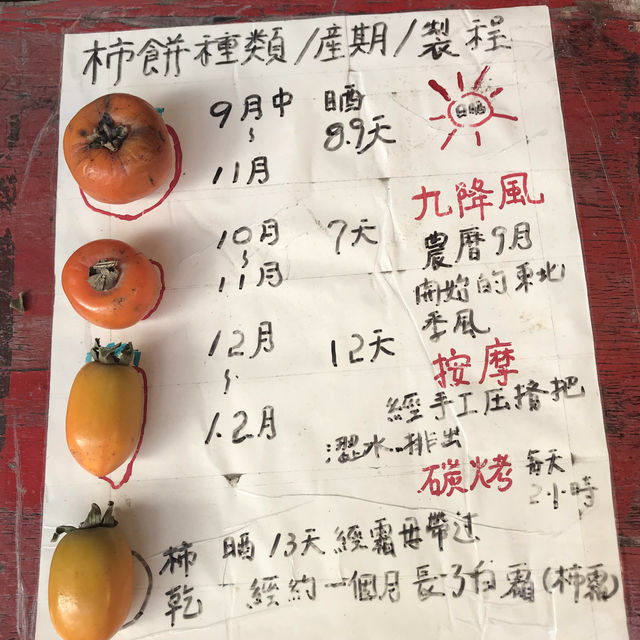 柿餅種類/產期/製程
9月中 晒
~ 8.9天
11月
日晒
九降風
10月 7天
~
11月
農曆9月
開始的東北
季風
12月 12天
~
1.2月
按摩
經手工压擠把
澀水排出
碳烤 每天
2小時
柿乾 晒13天 經霜母帶过
經約一個月長了白霜(柿霜)